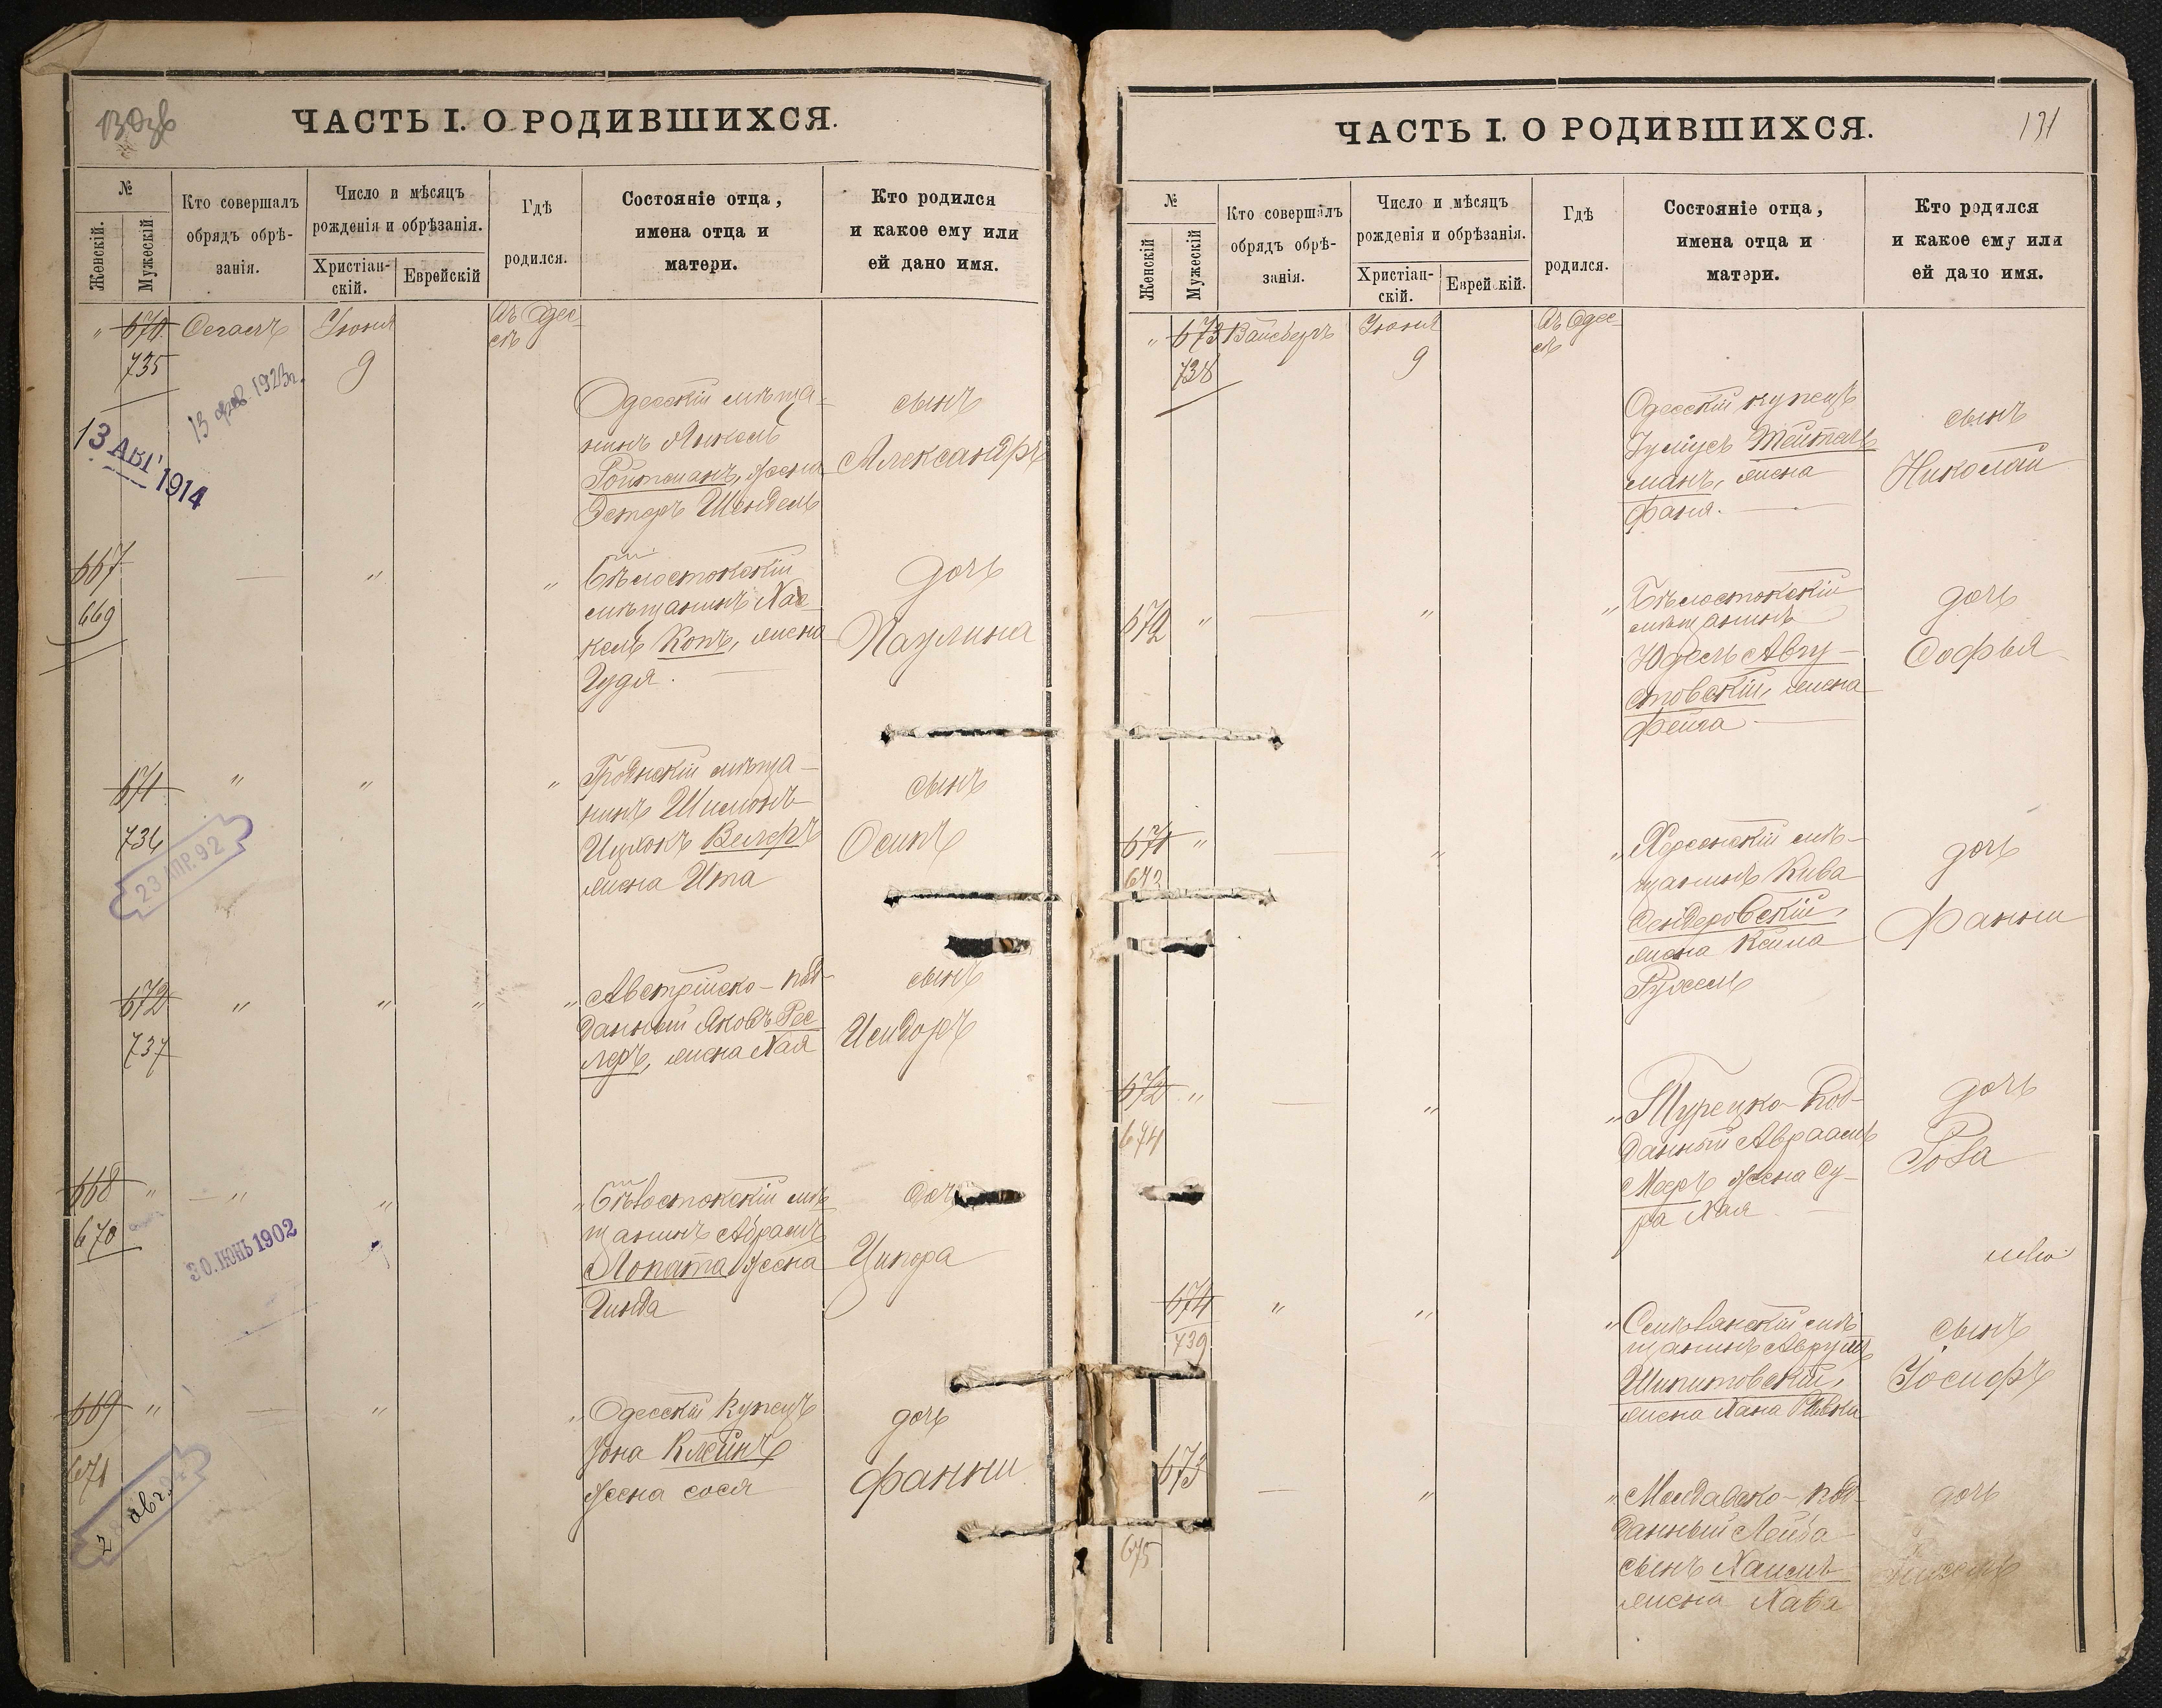 130зв
ЧАСТЬ I. О РОДИВШИХСЯ.
№
Женскій.
Мужескій
Кто совершалъ
обрядъ обрѣ-
занія.
Число и мѣсяцъ
рожденія и обрѣзанія.
Христіан-
скій.
Еврейскій
Гдѣ
родился.
Состояніе отца,
имена отца и
матери.
Кто родился
и какое ему или
ей дано имя.
" 670 Сегалъ Іюня Въ Одес-
сѣ
735 9
13 фев. 1923г.
13 АВГ 1914
Одесскій мѣща-
нинъ Янкель
Ройтманъ, жена
Эстеръ Шендель
сынъ
Александръ
667 — " "
669
Бѣлостокскій
мѣщанинъ Хас
кель Копъ, жена
Гудя.
дочь
Паулина
671 " " "
736
23 АПР. 92
Гродненскій мѣща-
нинъ Шимонъ
Ицхокъ Вельфъ
жена Ита
сынъ
Осипъ
672 " " " "
737
Австрійско-под-
данный Яковъ Рес
леръ, жена Хая
сынъ
Исидоръ
668 " — " " "
670
30. ІЮНЬ 1902
Бѣлостокскій мѣ
щанинъ Абрамъ
Лопата жена
Гинда
дочь
Ципора
669 " — " "
671
2 авг.
Одесскій купецъ
Іона Клейнъ
жена Сося
дочь
Фанни
ЧАСТЬ I. О РОДИВШИХСЯ.
131
№
Женскій
Мужескій
Кто совершалъ
обрядъ обрѣ-
занія.
Число и мѣсяцъ
рожденія и обрѣзанія.
Христіан-
скій.
Еврейскій.
Гдѣ
родился.
Состояніе отца,
имена отца и
матери.
Кто родился
и какое ему или
ей дано имя.
" 673 Вайсбергъ Іюня Въ Одес-
сѣ
738 9
Одесскій купецъ
Іуліусъ Тейтель
манъ, жена
Фаня.
сынъ
Николай
672 " — " "
Бѣлостокскій
мѣщанинъ
Юдель Авгу-
стовскій, жена
Фейга
дочь
Софья
671 " — " "
673
Херсонскій мѣ-
щанинъ Кива
Сендеровскій,
жена Кейла
Рухель
дочь
Фанни
672 " — " "
674
Турецко-под-
данный Авраамъ
Мееръ жена Су-
ра Хая
дочь
Роза
674 " " "
739
мѣщанинъ Аврумъ
Шипитовскій,
жена Хана Ривка
сынъ
Іосифъ
673 — " "
675
Молдавско-под-
данный Лейба
сынъ Хаимъ
жена Хава
дочь